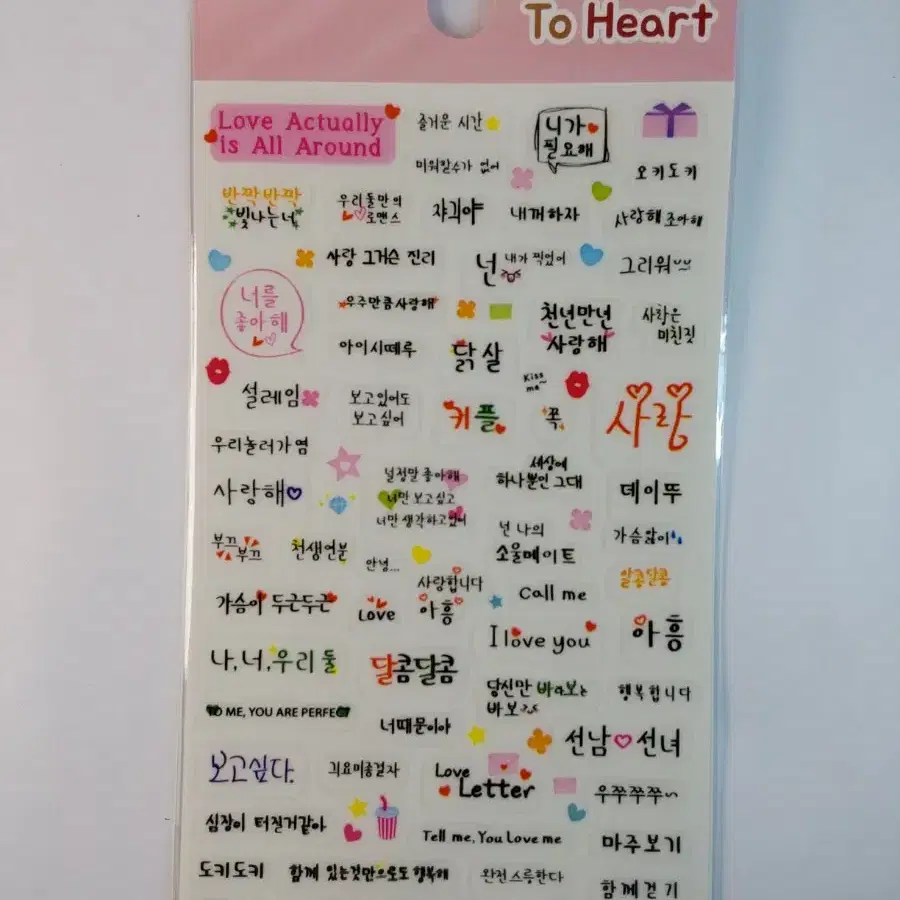 To Heart
Love Actually
is All Around
즐거운 시간
니가
필요해
미워할수가 없어
오키도키
반짝반짝
빛나는너
우리둘만의
로맨스
쟈긔야
내꺼하자
사랑해 조아해
사랑 그거슨 진리
넌 내가 찍었어
그리워
너를
좋아해
우주만큼사랑해
천년만년
사랑해
사랑은
미친짓
아이시떼루
닭살
Kiss
me~
설레임
보고있어도
보고싶어
커플
쪽
사랑
우리놀러가염
세상에
하나뿐인 그대
널정말 좋아해
너만 보고싶고
너만 생각하고있어
사랑해
데이뚜
부끄
부끄
천생연분
넌 나의
소울메이트
가슴앓이
안녕...
사랑합니다
알콩달콩
가슴이 두근두근
Love
아흥
Call me
I love you
아흥
나,너,우리 둘
달콤달콤
당신만 바라보는
바보
행복합니다
TO ME, YOU ARE PERFECT
너때문이야
선남 선녀
보고싶다.
긔요미종결자
Love
Letter
우쭈쭈쭈~
심장이 터질거같아
Tell me, You Love me
마주보기
도키도키
함께 있는것만으로도 행복해
완전스릉한다
함께걷기